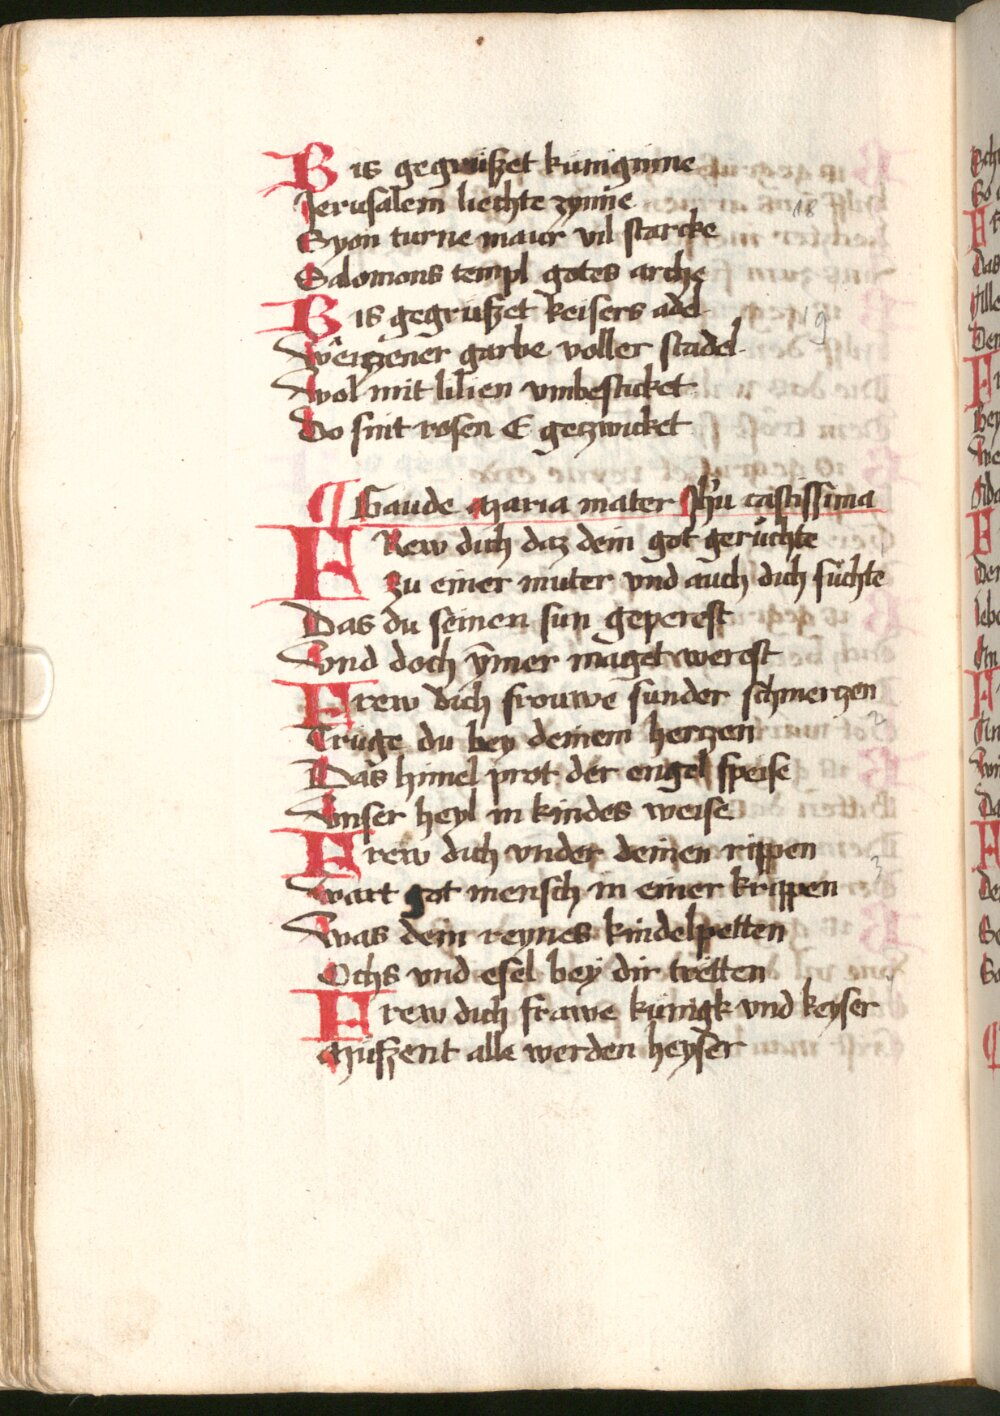 Bis gegrüszet künignne
Jerusalem liechte zynne
Syon turne maur vil starcke
Salomons templ gotes arche
Bis gegrüszet keisers adel
Weitzener garbe voller stadel
Wol mit lilien vmbesticket
Do sint rosen E gezwicket
Gaude Maria mater Jhu castissima
FRew dich daz dein got gerüchte
Zu einer müter vnd auch dich süchte
Das du seinen sun geperest
Vnd doch ymer maget werest
Frew dich frouwe sunder schmertzen
Trüge du bey deinem hertzen
Das himel prot der engel speise
Vnser heyl in kindes weise
Frew dich vnder deinen rippen
Wart got mensch in einer krippen
Was dein reynes kindelpetten
Ochs vnd esel bey dir tretten
Frew dich frawe künigk vnd keyser
Müszent alle werden heyser
18
19
2
3